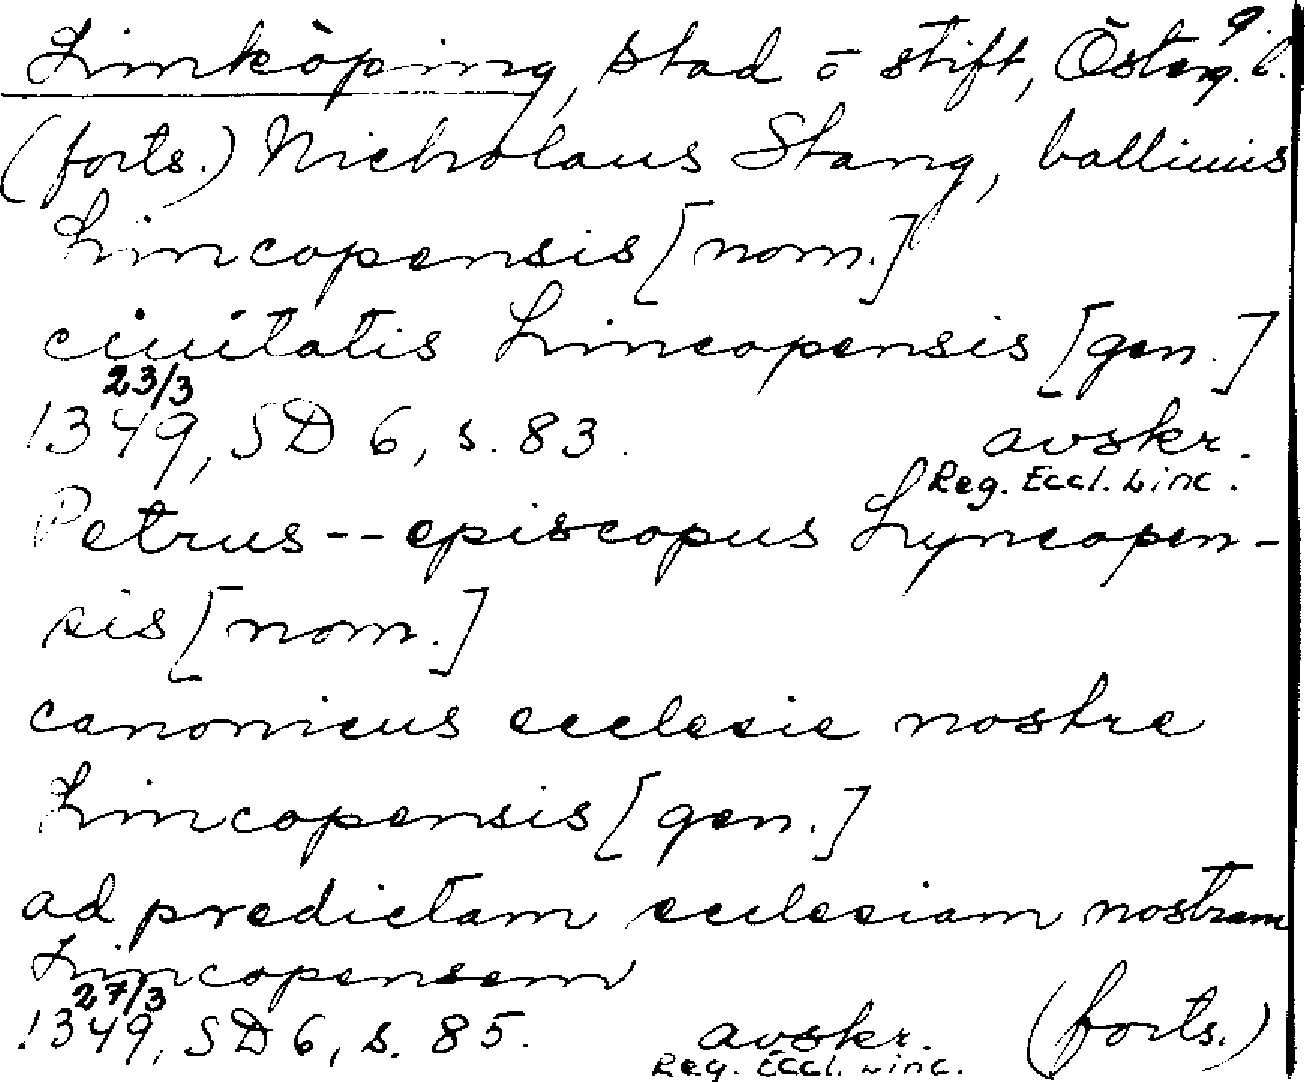 Linköping, stad o stift, Österg. l. 9.
(forts.) Nicholaus Stang, balliuus
Lincopensis [nom.]
ciuitatis Lincopensis [gen.]
23/3
1349, SD 6, s. 83. avskr.
Reg. Eccl. Linc.
Petrus -- episcopus Lyncopen-
sis [nom.]
canonicus ecclesie nostre
Lincopensis [gen.]
ad predictam ecclesiam nostram
Lincopensem
27/3
1349, SD 6, s. 85. avskr. (forts.)
Reg. Eccl. Linc.